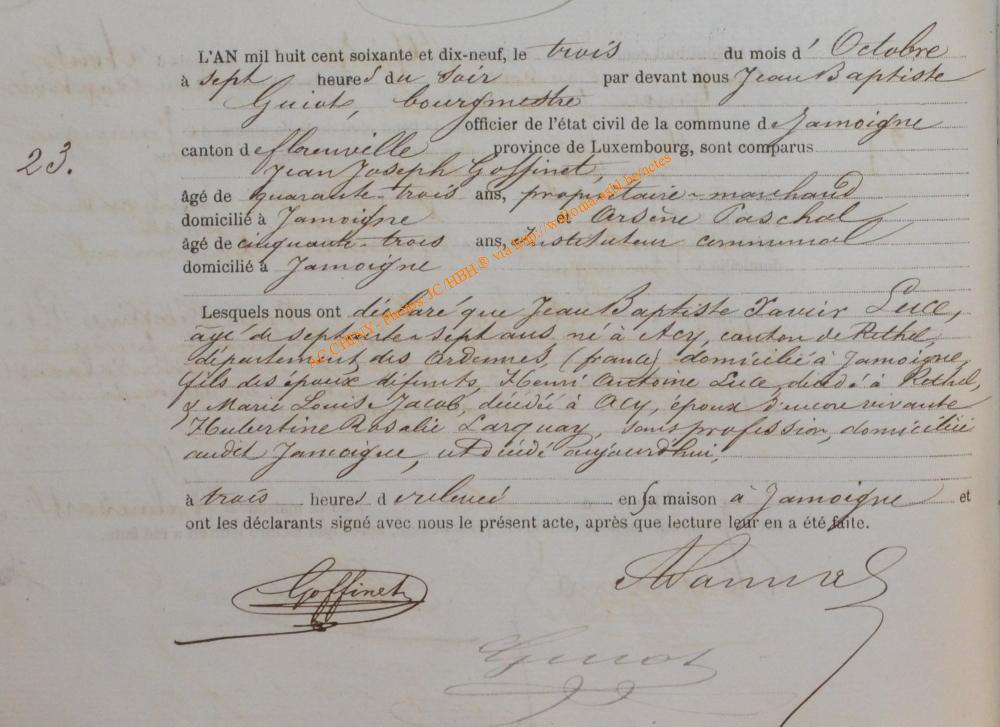 L'AN mil huit cent soixante et dix-neuf, le trois du mois d' Octobre
à sept heures du soir par devant nous Jean Baptiste
Guiot, bourgmestre
officier de l'état civil de la commune de Jamoigne
23.
canton de florenville province de Luxembourg, sont comparus
Jean Joseph Goffinet,
âgé de quarante-trois ans, propriétaire-marchand
domicilié à Jamoigne et Arsène Paschal
âgé de cinquante-trois ans, Instituteur communal
domicilié à Jamoigne
AC CHINY - Photos: JC/HBH ® via http://weltoma-asbl.be/actes
Lesquels nous ont déclaré que Jean Baptiste Xavier Luce,
agé de septante-sept ans né à Acy, canton de Rethel,
département des Ardennes, (france) domicilié à Jamoigne,
fils des époux défunts, Henri Antoine Luce, décédé à Rethel,
& Marie Louise Jacob, décédée à Acy, époux d'encore vivante
Hubertine Rosalie Larquay, sans profession, domiciliée
audit Jamoigne, est décédé aujourd'hui,
à trois heures de relevée en sa maison à Jamoigne et
ont les déclarants signé avec nous le présent acte, après que lecture leur en a été faite.
Goffinet
Guiot